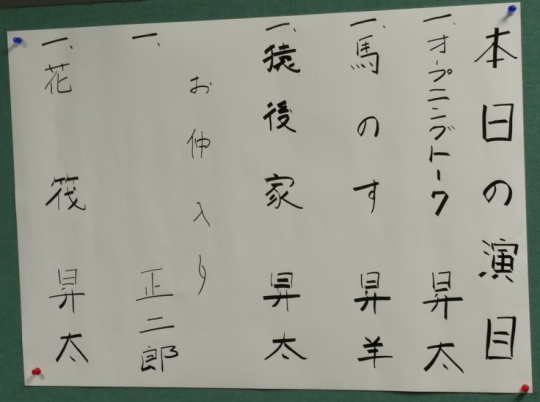 本日の演目
一、オープニングトーク 昇太
一、馬のす 昇羊
一、猿後家 昇太
お仲入り
一、 正二郎
一、花筏 昇太